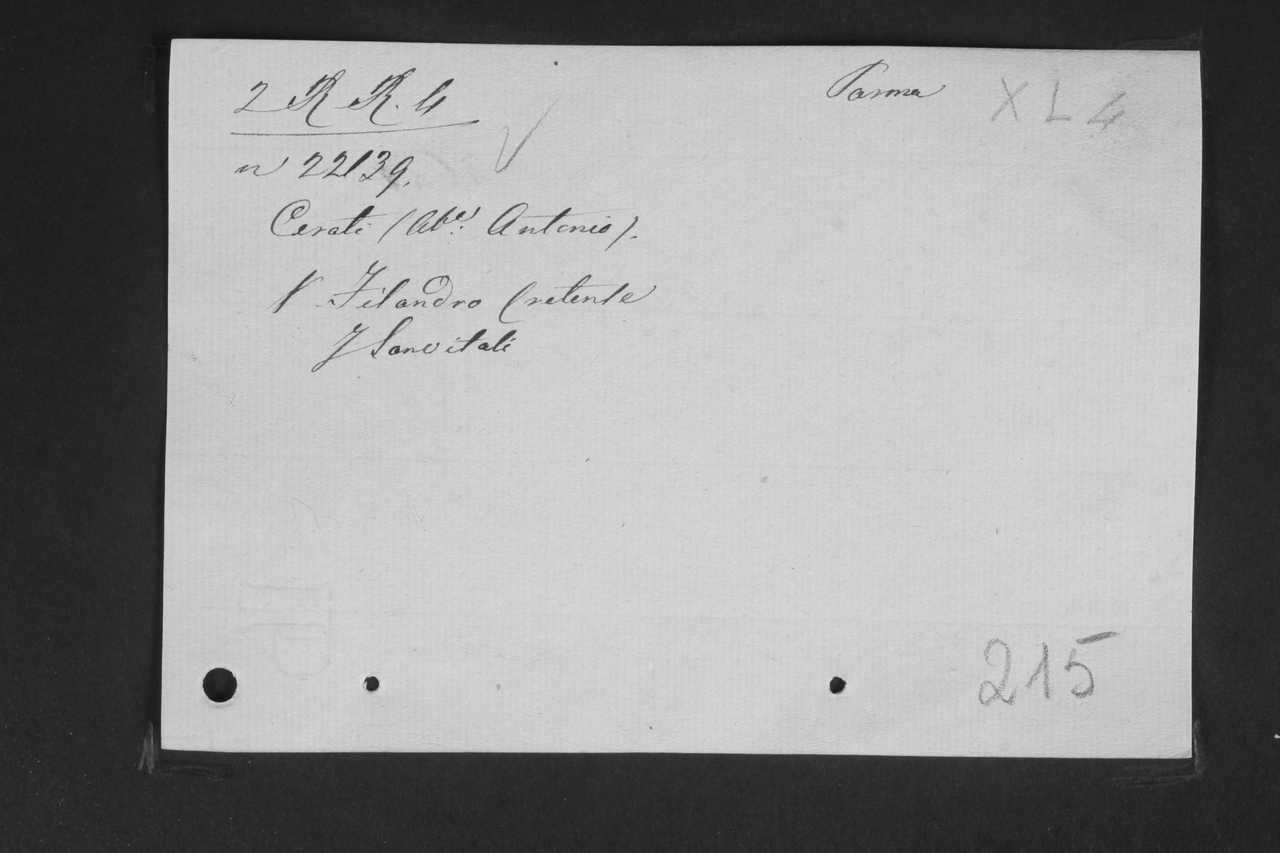 2 R R. 4
Parma
X L 4
n 22139.
Cerati (Ab.e Antonio).
V. Filandro Cretense
J Sanvitali
215